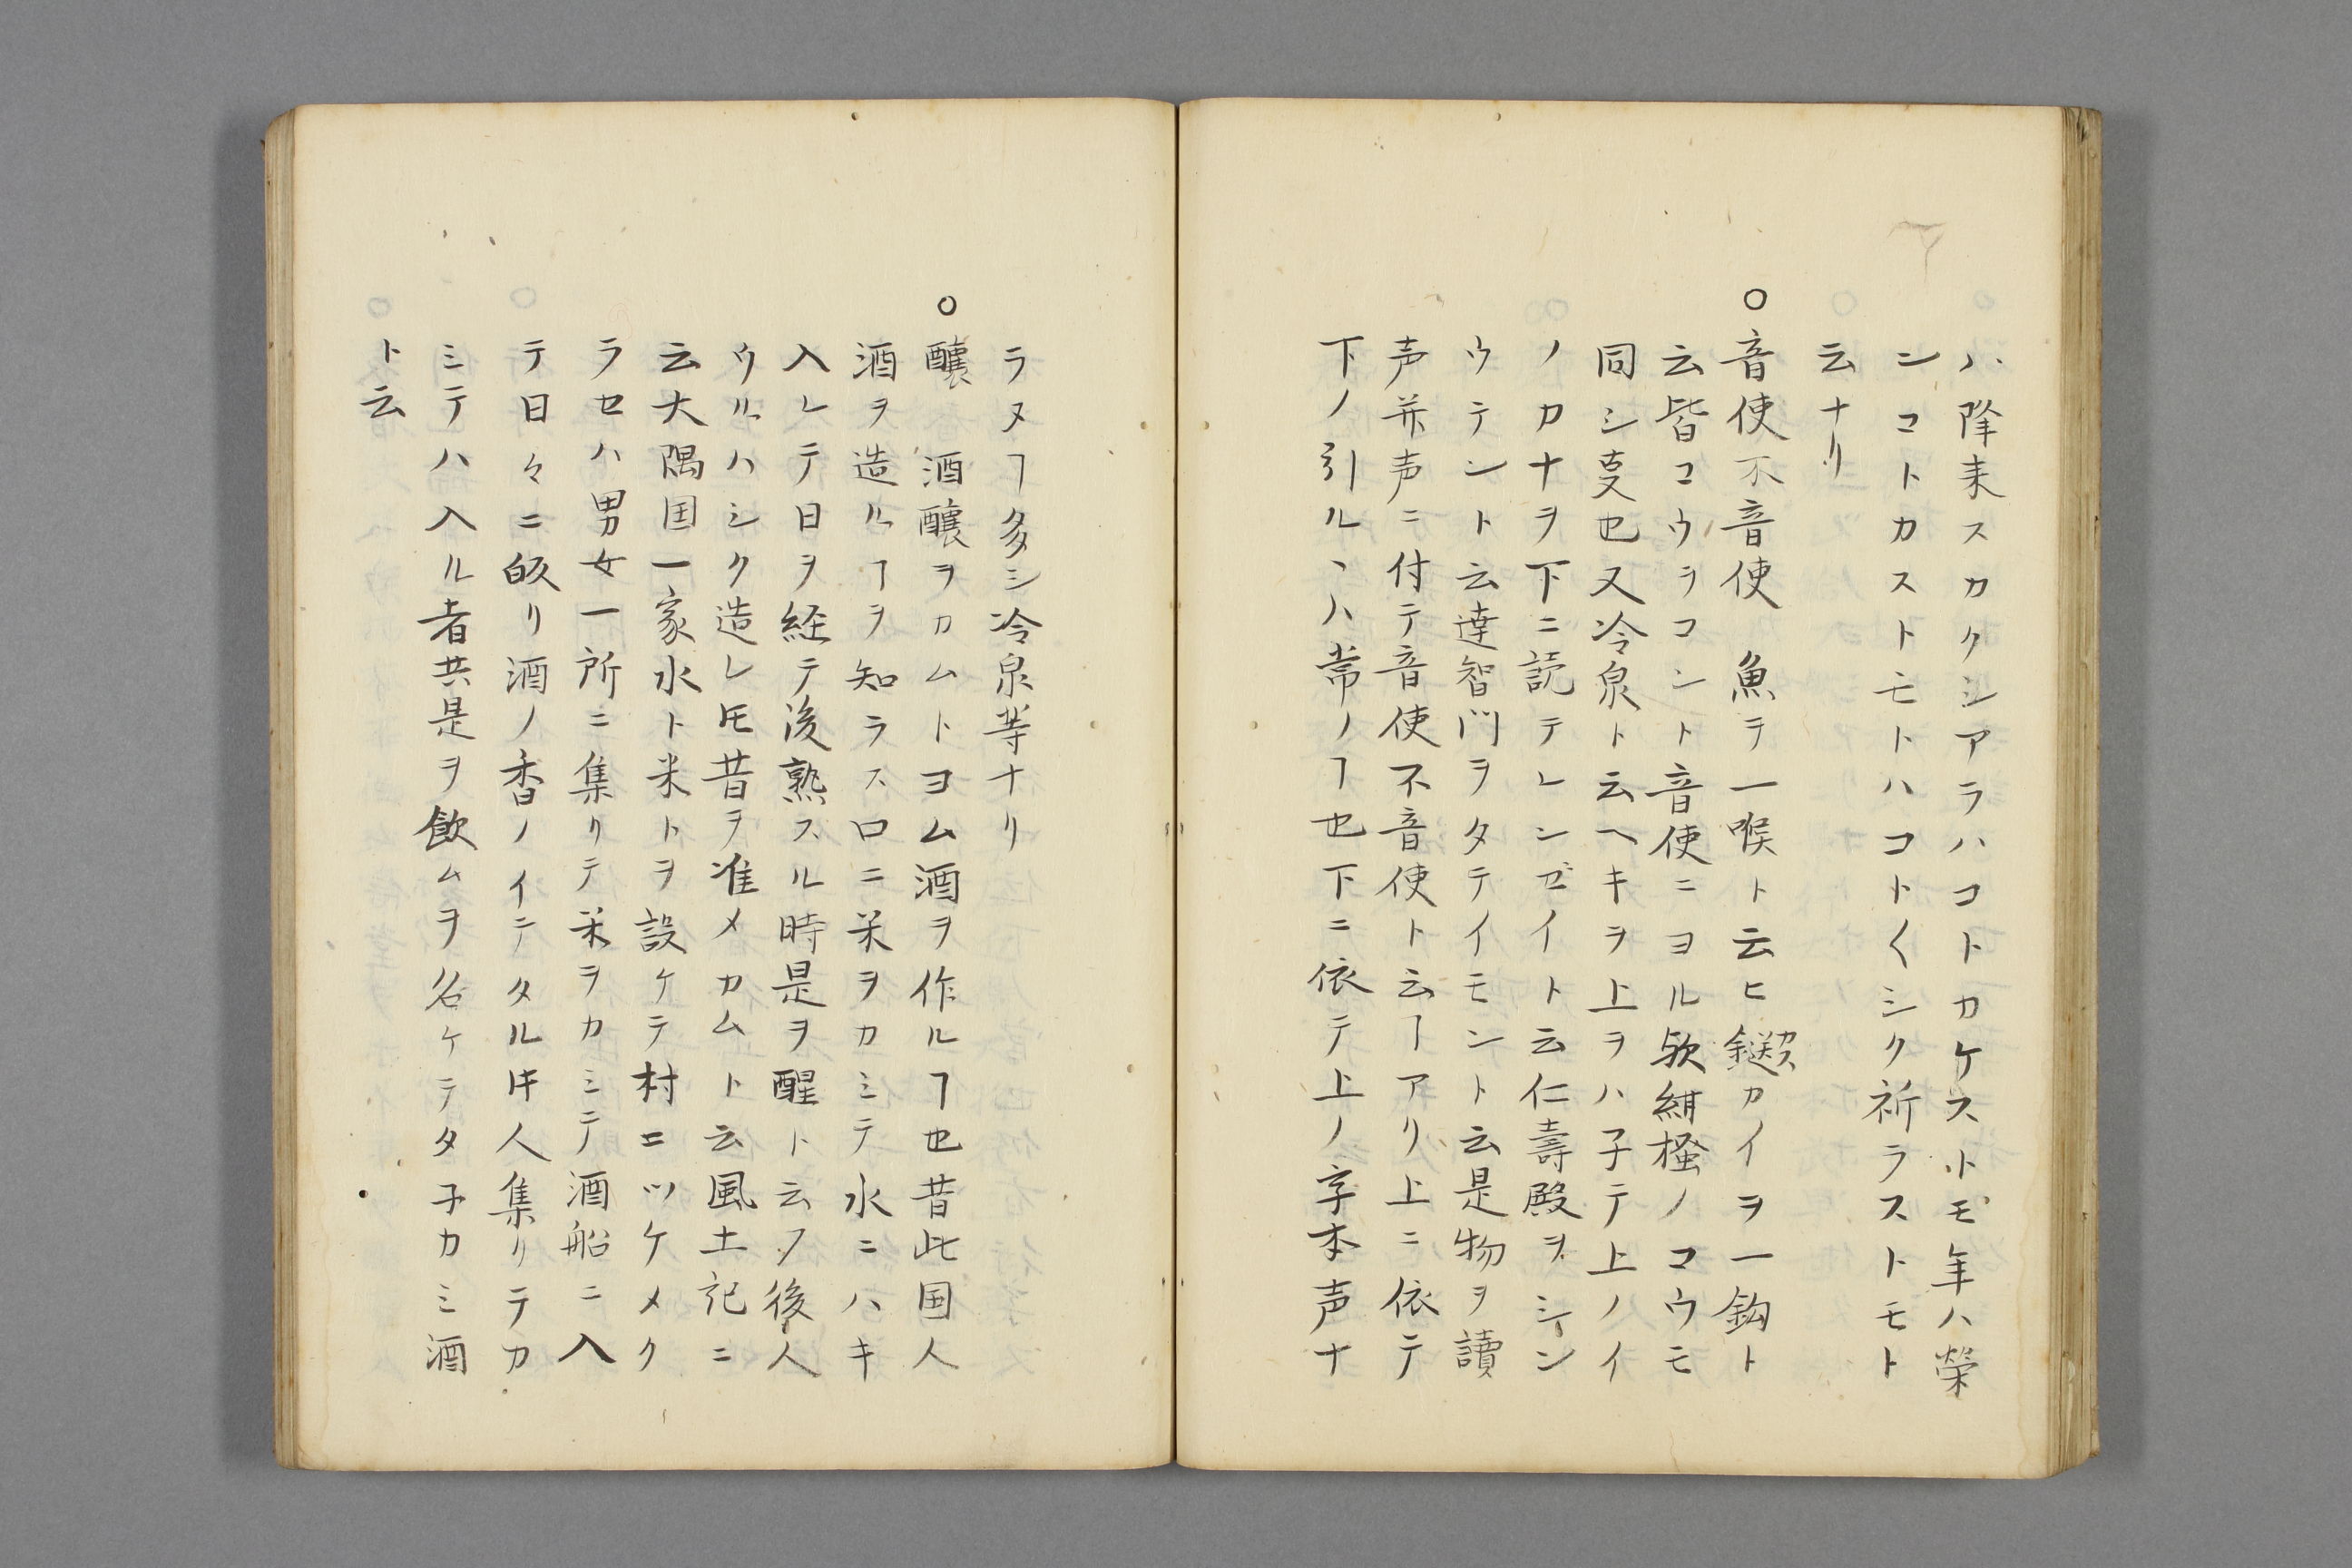 ハ降来スカクシアラハコトカケストモ年ハ榮
ンコトカストモトハコト〱シク祈ラストモト
云ナリ
○音使不音使　魚ヲ一喉ト云ヒ鎹カスカイヲ一鈎ト
云皆コウラコント音使ニヨル欤紺搔ノコウモ
同シ㕝也又冷泉ト云ヘキヲ上ヲハ子テ上ノイ
ノカナヲ下ニ読テレンゼイト云仁壽殿ヲシン
ウテント云達智門ヲタテイモント云是物ヲ讀
声并声ニ付テ音使不音使ト云ヿアリ上ニ依テ
下ノ引ルヽハ常ノヿ也下ニ依テ上ノ字本声ナ
ラヌヿ多シ冷泉等ナリ
○釀　酒釀ヲカムトヨム酒ヲ作ルヿ也昔此国人
酒ヲ造ルヿヲ知ラス口ニ米ヲカミテ水ニハキ
入レテ日ヲ経テ後熟スル時是ヲ醒ト云フ後人
ウルハシク造レ𪜈昔ヲ准メカムト云風土記ニ
云大隅国一家水ト米トヲ設ケテ村ニツケメク
ラセハ男女一所ニ集リテ米ヲカミテ酒船ニ入
テ日々ニ皈リ酒ノ香ノイテタル㐧人集リテカ
ミテハ入ル者共是ヲ飲ムヲ名ケテタ子カミ酒
ト云